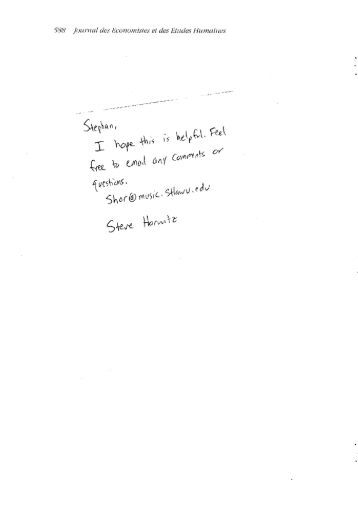 598 Journal des Economistes et des Etudes Humaines
Stephan,
I hope this is helpful. Feel
free to email any comments or
questions.
Shor@music.stlawu.edu
Steve Horwitz